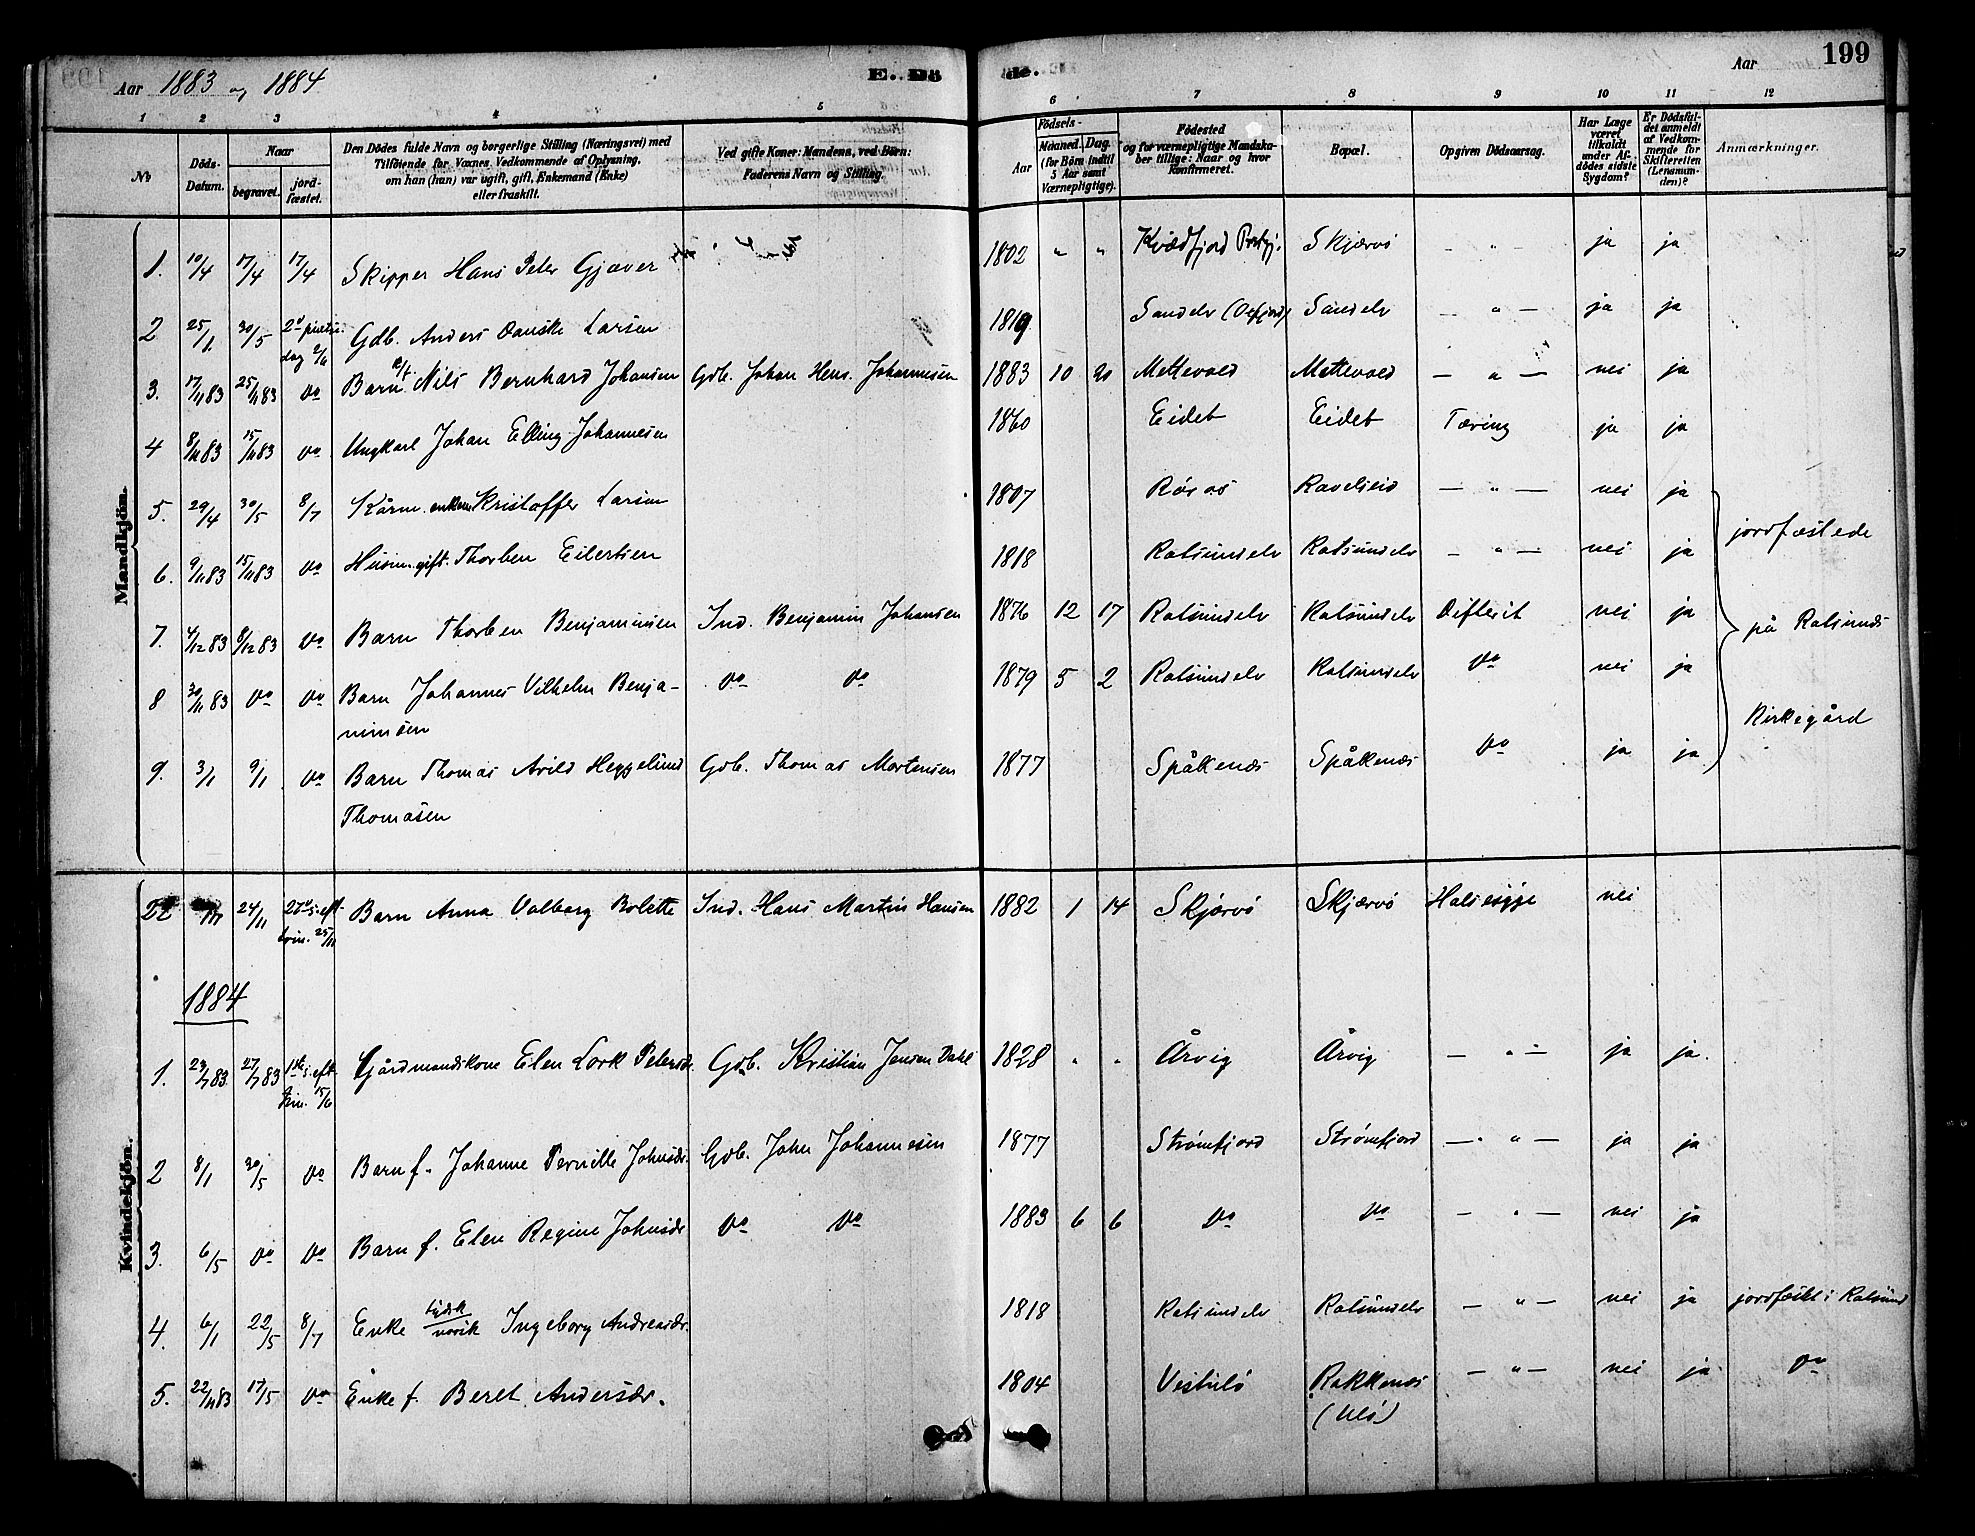 Aar 1883 og 1884
E. Dö
de.
Aar
199
1 2 3 4 5 6 7 8 9 10 11 12
No
Döds-Datum.
Naar
begravet.
jord-fæstet.
Den Dödes fulde Navn og borgerlige Stilling (Næringsvei) med
Tilföiende for Voxnes Vedkommende af Oplysning,
om han (hun) var ugift, gift, Enkemand (Enke)
eller fraskilt.
Ved gifte Koner: Mandens, ved Börn:
Faderens Navn og Stilling.
Födsels-
Aar
Maaned. Dag.
(for Börn indtil
5 Aar samt
Værnepligtige).
Födested
og for værnepligtige Mandska-
ber tillige: Naar og hvor
konfirmeret.
Bopæl.
Opgiven Dödsaarsag.
Har Læge
været
tilkaldt
under Af-
dødes sidste
Sygdom?
Er Dödsfal-
det anmeldt
af Vedkom-
mende for
Skifteretten
(Lensman-
den)?
Anmærkninger.
Mandkjön.
1. 10/4 17/4 17/4 Skipper Hans Peter Gjæver 1802 " " Kvædfjord Prstgj. Skjærvö — " — ja ja
2 25/1 30/5 2d pintse-dag 2/6 Gdb. Anders Danske Larsen 1819 Sandelv Sandelv — " — ja ja
3. 17/11 83 25/11 83 do Barn Nils Bernhard Johansen Gdb. Johan Hens. Johannesen 1883 10 20 Mettevold Mettevold — " — nei ja
4 8/11 83 15/11 83 do Ungkarl Johan Elling Johannesen 1860 Eidet Eidet Tæring ja ja
5. 29/4 30/5 8/7 Kårm. enkem Kristoffer Larsen 1807 Rörös Raveleid — " — nei ja
6. 9/11 83 15/11 83 do Husm. gift. Thorben Eilertsen 1818 Rotsundelv Rotsundelv — " — nei ja
7. 4/12 83 8/12 83 do Barn Thorben Benjaminsen Ind. Benjamin Johansen 1876 12 17 Rotsundelv Rotsundelv Difterit nei ja
8 30/11 83 do do Barn Johannes Vilhelm Benja-
minsen do do 1879 5 2 Rotsundelv Rotsundelv do nei ja
9. 3/1 9/1 do Barn Thomas Arild Heggelund
Thomasen Gdb. Thomas Mortensen 1877 Spåkenes Spåkenes do ja ja
jordfæstede
på Rotsunds
Kirkegård
Kvindekjön.
22 24/11 27d s. eft. trin. 25/11 Barn Anna Valborg Bolette Ind. Hans Martin Hansen 1882 1 14 Skjærvö Skjærvö Halsesyge nei
1884
1. 23/7 83 27/7 83 1ste s. eft. trin. 15/6 Gårdmandskone Elen Lork Petersdr. Gdb. Kristian Jensen Dahl 1828 " " Årvig Årvig — " — ja ja.
2 8/1 30/5 do Barn f. Johanne Pernille Johnsdr. Gdb. John Johannesen 1877 Strömfjord Strömfjord — " — ja ja
3. 6/5 do do Barn f. Elen Regine Johnsdr do do 1883 6 6 do do — " — nei ja
4. 6/1 22/5 8/7 Enke norsk Ingeborg Andreasdr. 1818 Rotsundelv Rotsundelv — " — nei ja jordfæstet i Rotsund
5. 22/11 83 17/5 do Enke f. Beret Andersdr. 1804 Vestulö Rakkenes
(Ulö) — " — nei ja do